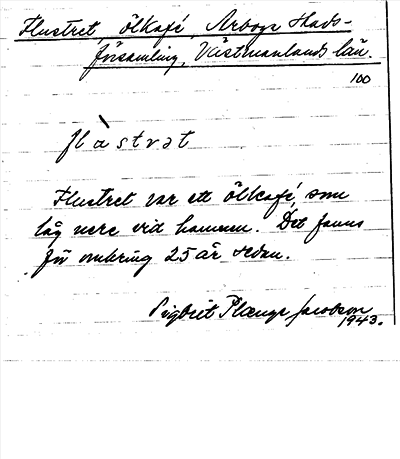 Flustret, ölkafé, Arboga Stads-
församling, Västmanlands län.
100
flàstrət
Flustret var ett ölkafé, som
låg nere vid hamnen. Det fanns
för omkring 25 år sedan.
Sigbrit Plænge Jacobson
1943.